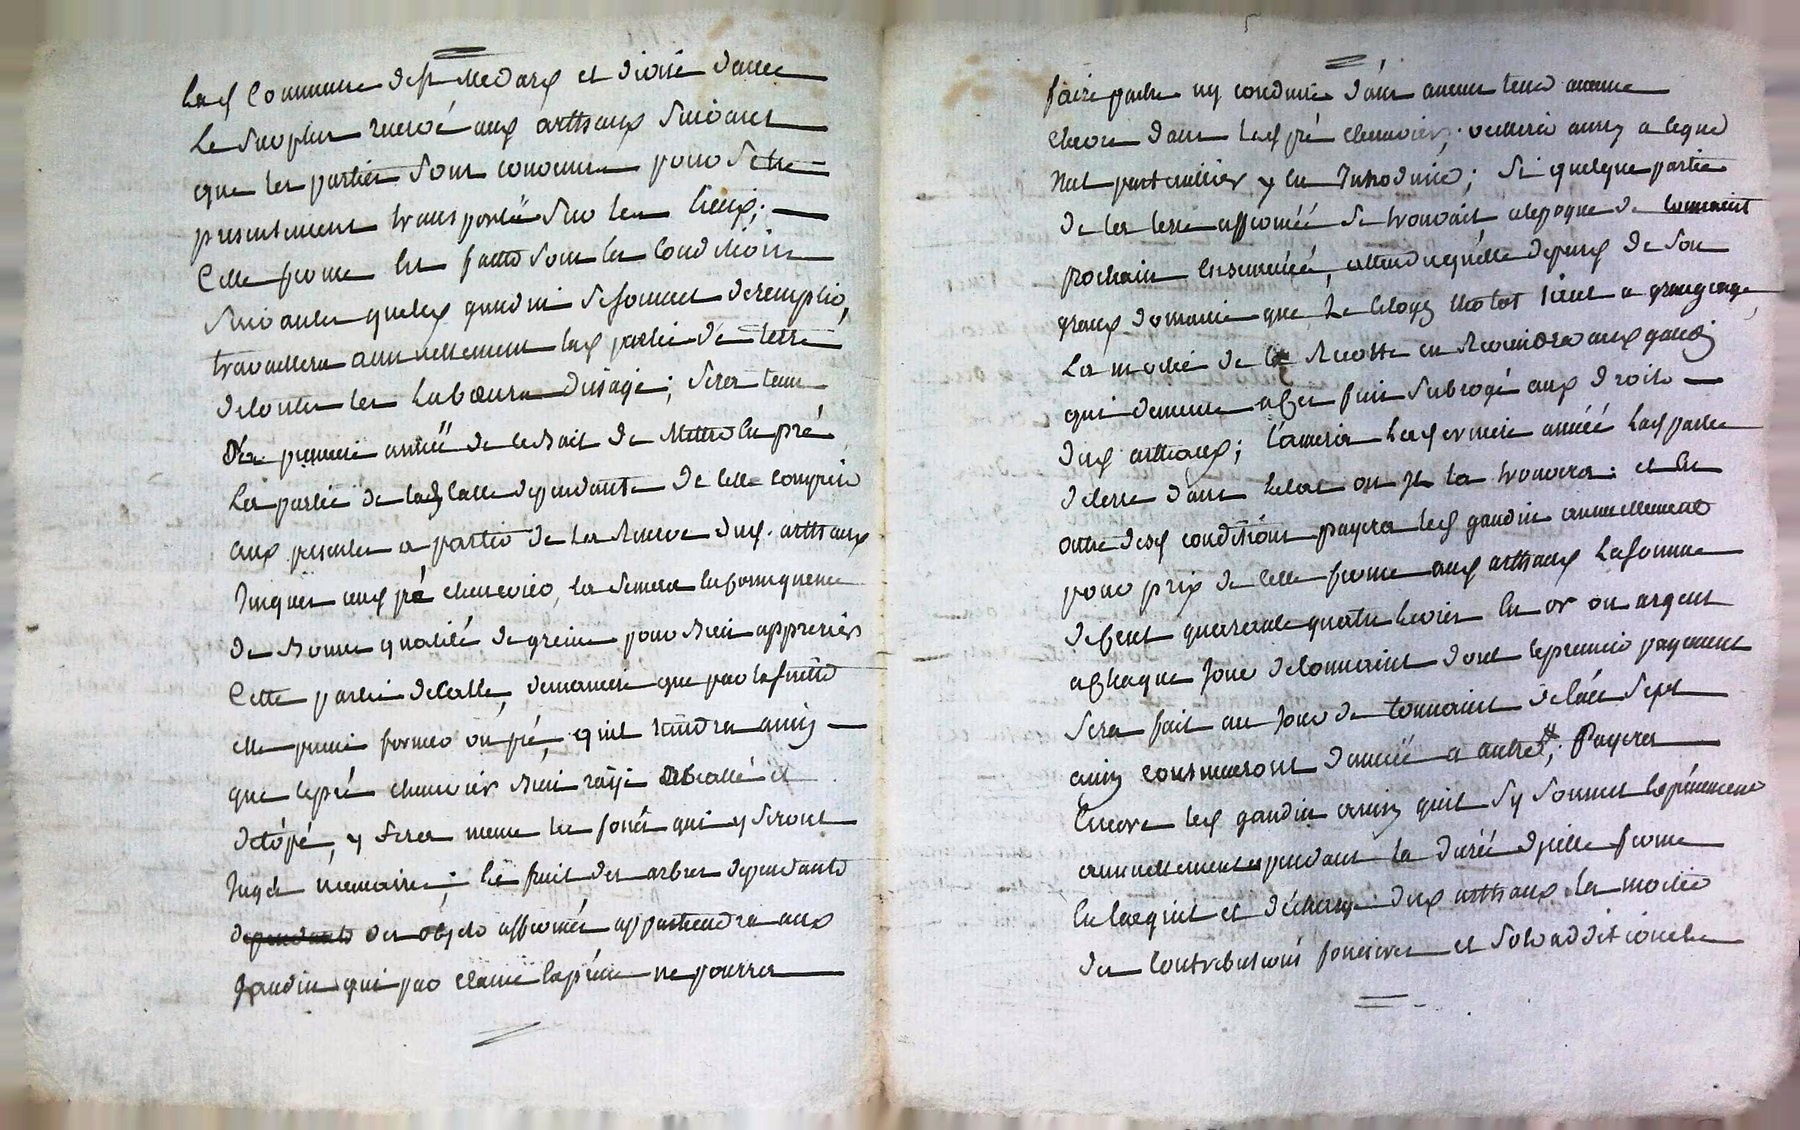 lad. Commune de St Medard et divisé d'avec
le Surplus reservé aux arthaux Suivant
que les parties Sont convenues pour Setre
presentement transporté Sur les lieux;
Cette ferme est faitte Sous les Conditions
Suivantes queled. gaudin Se Soumet deremplir,
travaillera annuellement lad. partie de terre
detoutes les laboeurs dusage; Sera tenu
premiere année de ce Bail de Mettre en pré
la partie de lad. dependante de celle comprise
aux presentes a partir de la Reserve dud. arthaux
Jusques aud. pré chenevier, la Semera
de Bonne qualité de greine pour Bien approprier
Cette partie de maniere que par la Suitte
elle puisse former un pré, quil tiendra ainsy
que le pré chenevier Bien
detôpé, y fera meme les fossés qui y Seront
Jugés necessaires; les fruit des arbres dependants
dependants des objets affermés appartiendra aux
gaudin qui par clause expresse ne pourra
faire paitre ny conduire dans aucun tems aucune
chevre dans led. pré chenevier; veillera aussy a ceque
Nul particullier y en Introduise; Si quelque partie
de la terre affermée Se trouvait alepoque de toussaint
prochain Ensemencée, attendu quelle depend de Son
grand domaine que le Citoyen tient a grangeage,
La moitié de la Recotte en Reviendra aud. gaudin
qui demeure a Cet Effet Subrogé aux droits
dud. arthaux; Laissera la derniere année lad. partie
de terre dans letat ou Il la trouvera: et En
outre desd. conditions payera led. gaudin annuellement
pour prix de cette ferme aud. arthaux la Somme
de Cent quarante quatre livres En or ou argent
a Chaque Jour de toussaint dont le premier payement
Sera fait au Jour de toussaint de l'an Sept
ainsy continueront d'année a autre; Payera
Encore led. gaudin ainsy quil Sy Soumet Expressement
annuellement pendant la durée dicelle ferme
En lacquit et décharge dud. arthaux la moitié
des Contributions foncieres et Sols additionels